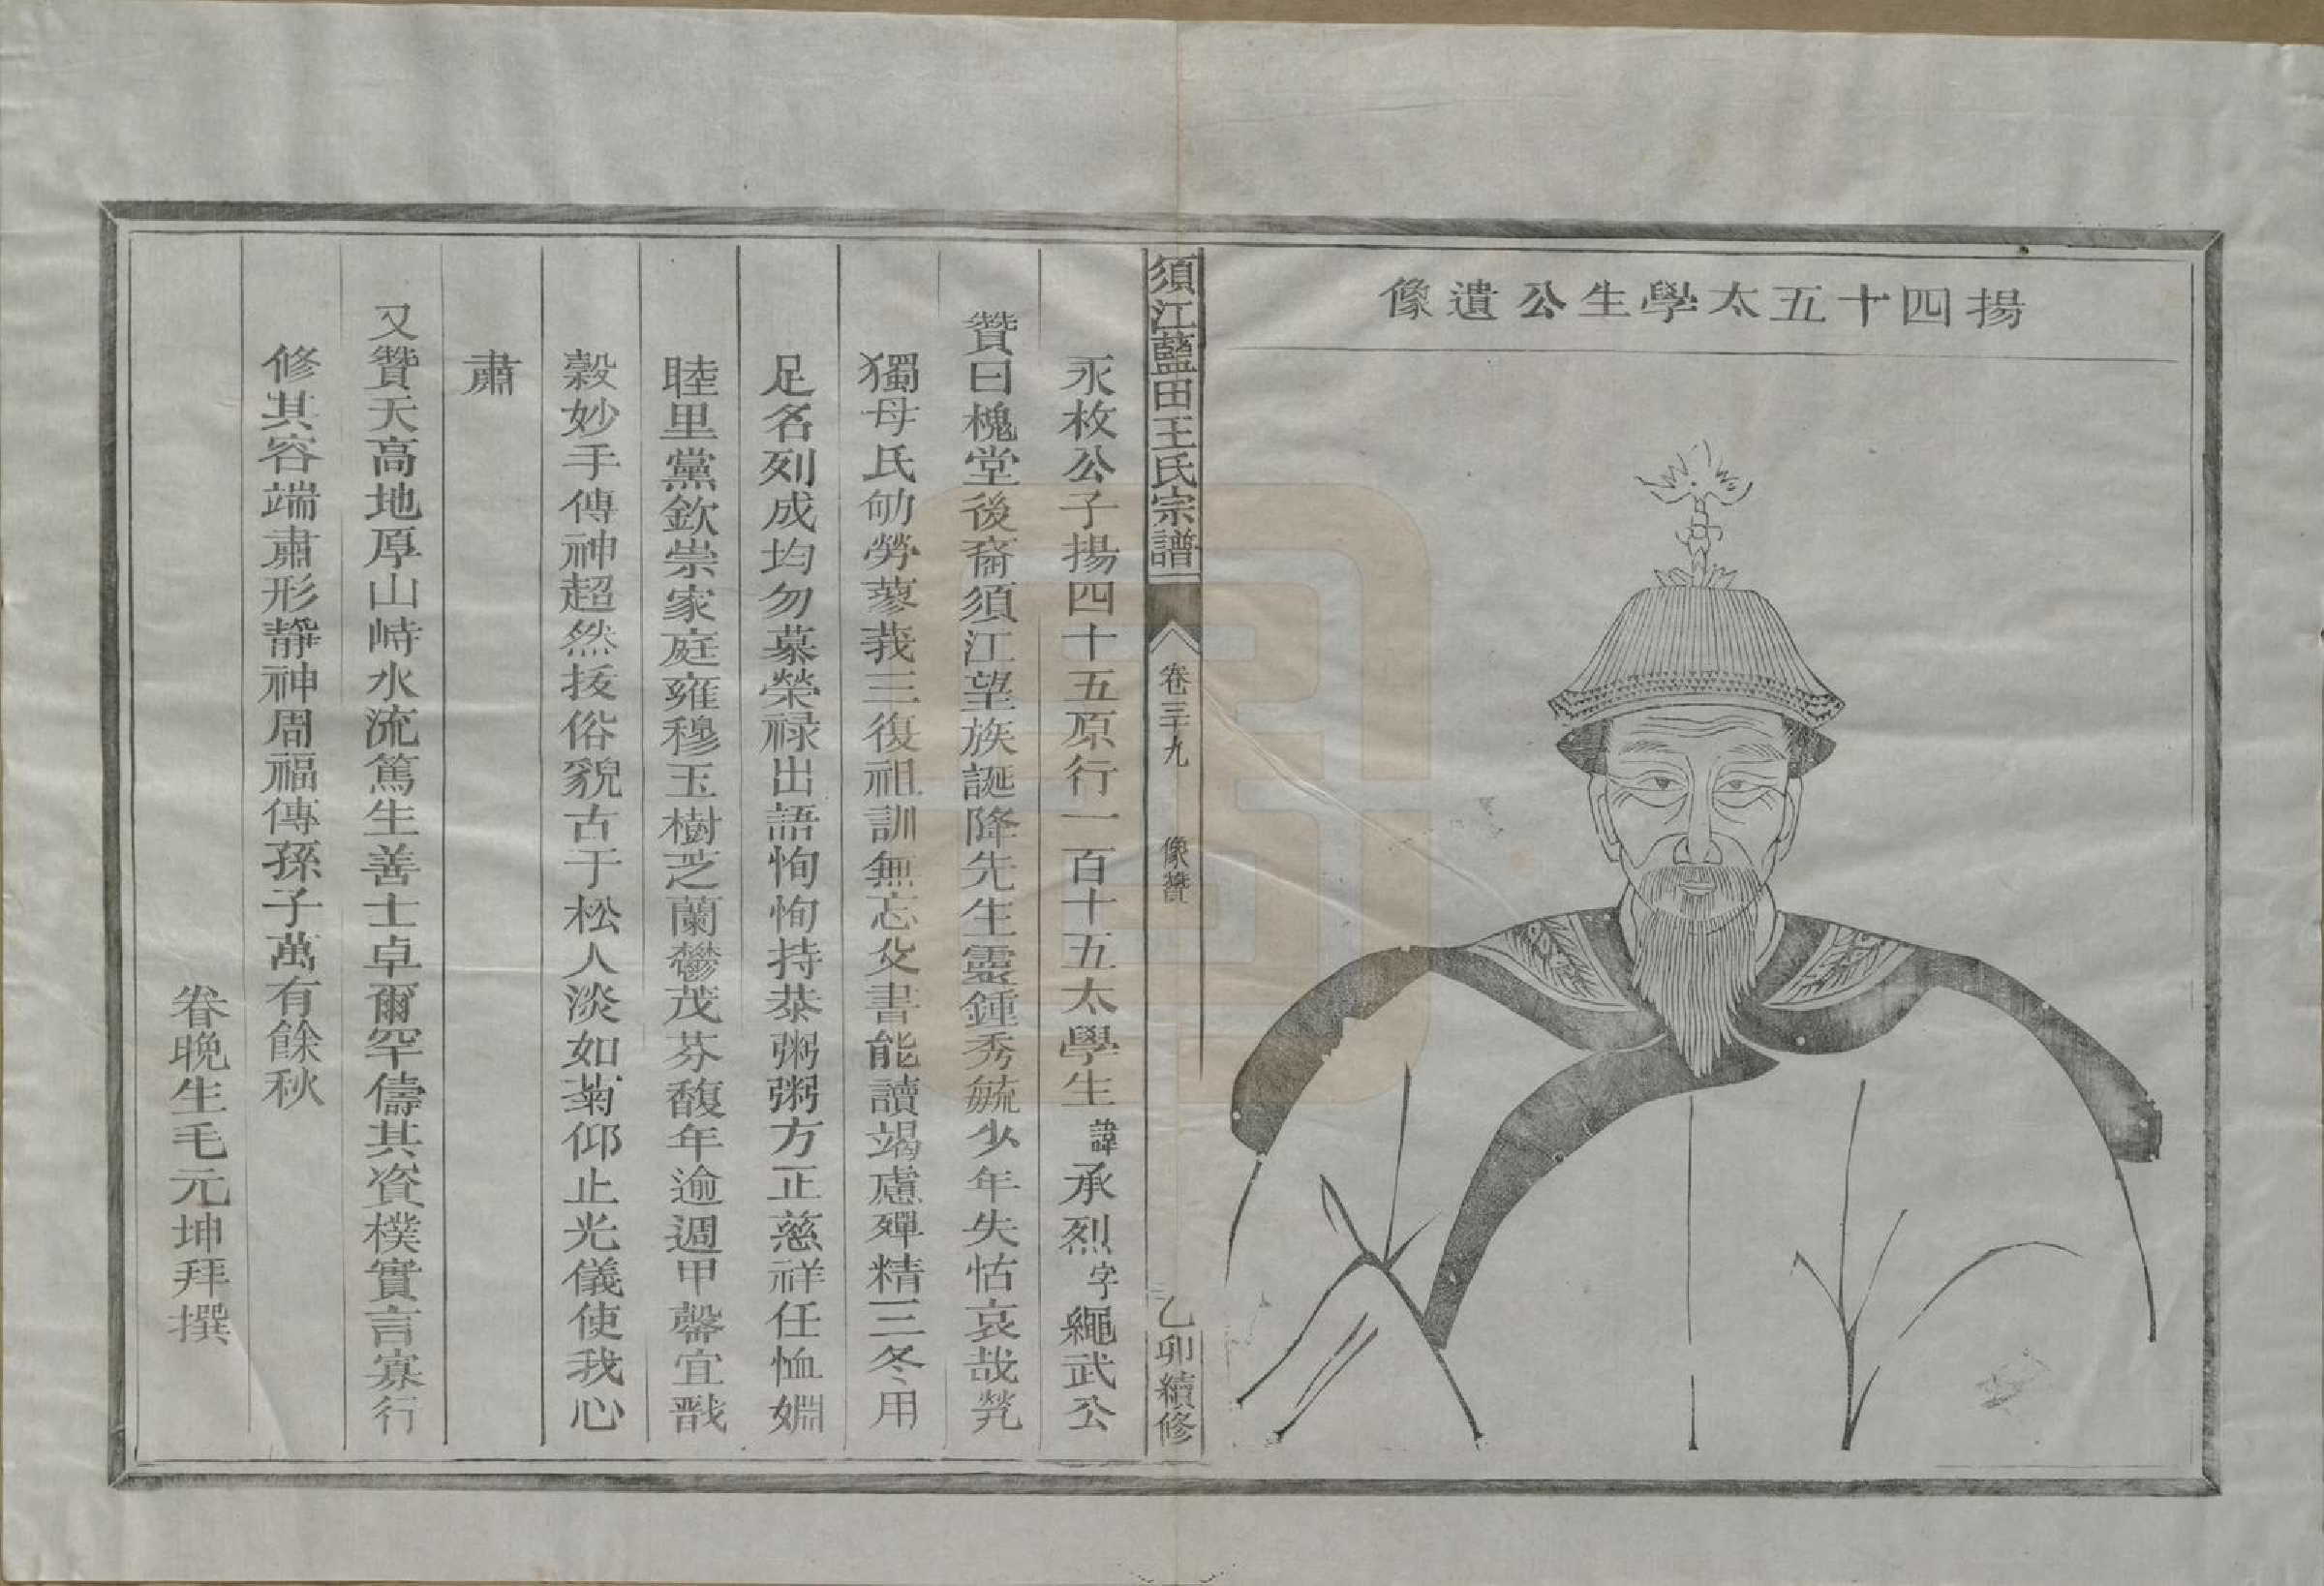 揚四十五太學生公遺像
須江藍田王氏宗譜
卷三十九
像贊
乙卯續修
永枚公子揚四十五原行一百十五太學生諱承烈字繩武公
贊曰槐堂後裔須江望族誕降先生靈鍾秀毓少年失怙哀哉煢
獨母氏劬勞蓼莪三復祖訓無忘父書能讀竭慮殫精三冬用
足名列成均勿慕榮祿出語恂恂持恭粥粥方正慈祥任恤婣
睦里黨欽崇家庭雍穆玉樹芝蘭鬱茂芬馥年逾週甲罄宜戩
穀妙手傳神超然拔俗貌古于松人淡如菊仰止光儀使我心
肅
又贊天高地厚山峙水流篤生善士卓爾罕儔其資樸實言寡行
修其容端肅形靜神周福傳孫子萬有餘秋
眷晚生毛元坤拜撰